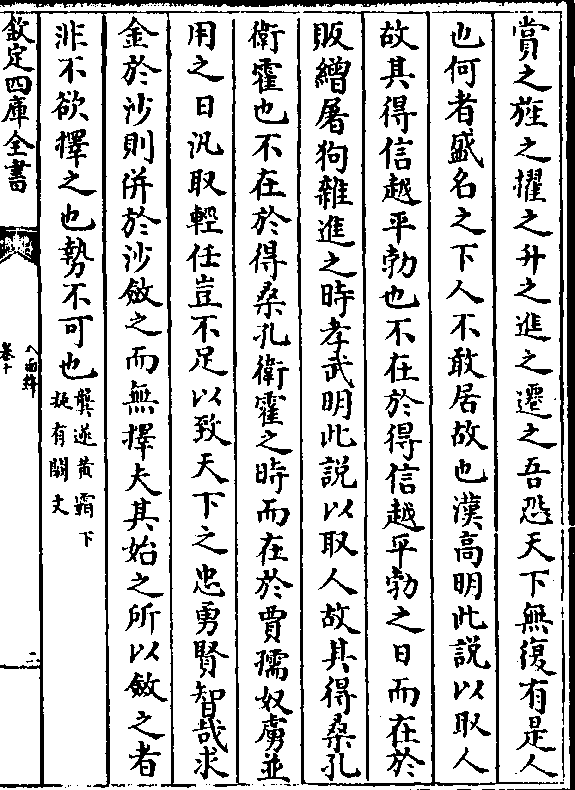 賞之旌之擢之升之進之遷之吾恐天下無復有是人
也何者盛名之下人不敢居故也漢高明此說以取人
故其得信越平勃也不在於得信越平勃之日而在於
販繒屠狗雜進之時孝武明此說以取人故其得桑孔
衛霍也不在於得桑孔衛霍之時而在於賈孺奴虜並
用之日汎取輕任豈不足以致天下之忠勇賢智哉求
金於沙則併於沙斂之而無擇夫其始之所以斂之者
非不欲擇之也勢不可也
龔遂黄霸下
疑有闕文
欽定四庫全書
八面鋒
卷十
二